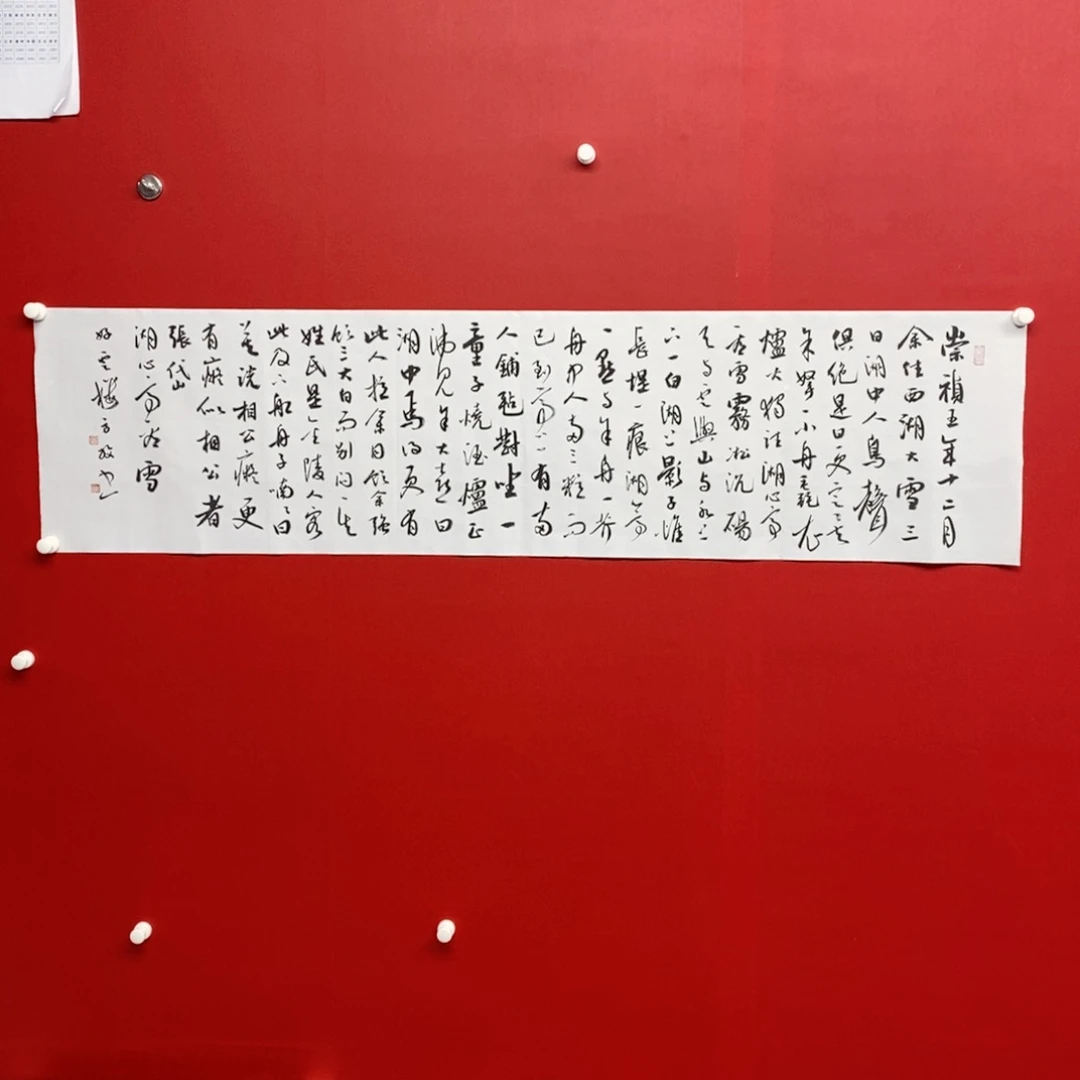 崇禎五年十二月
余住西湖大雪三
日湖中人鳥聲
俱絕是日更定矣
余拏一小舟毳衣
爐火獨往湖心亭
看雪霧凇沆碭
天與雲與山與水上
下一白湖上影子惟
長堤一痕湖心亭
一點與余舟一芥
舟中人兩三粒而
已到亭上有兩
人鋪氈對坐一
童子燒酒爐正
沸見余大喜曰
湖中焉得更有
此人拉余同飲余強
飲三大白而別問其
姓氏是金陵人客
此及下船舟子喃喃曰
莫說相公癡更
有癡似相公者
張岱
湖心亭看雪